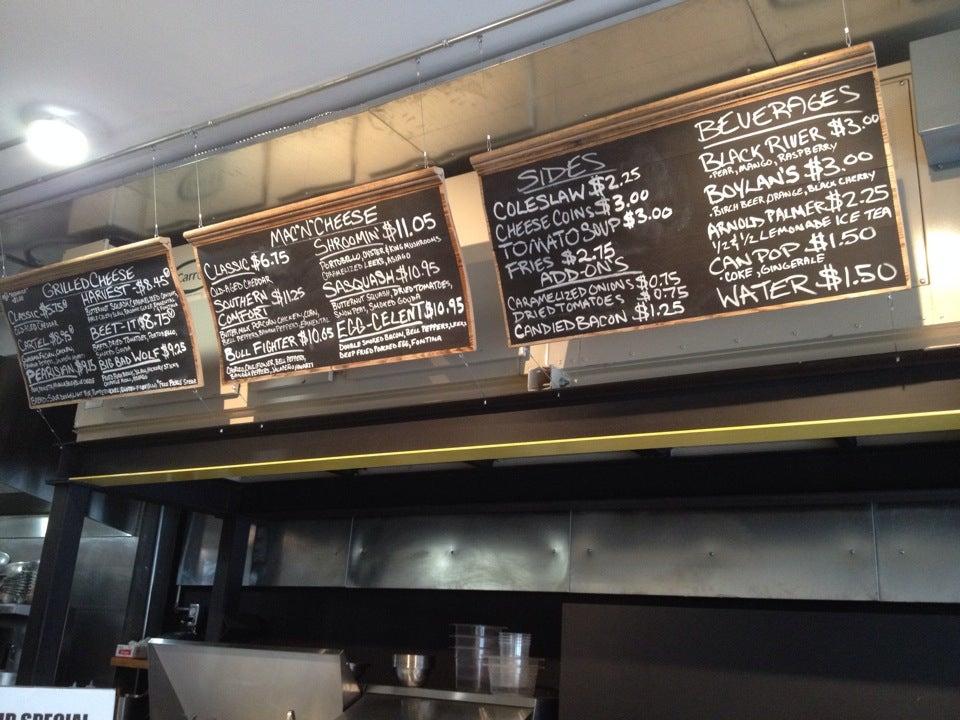 GRILLED CHEESE
CLASSIC $5.75
OLD AGED CHEDDAR
CARTEL $8.95
PEARISIAN $9.15
HARIEST $8.45
BEET-IT $8.75
BEETS, DRIED TOMATOES, PORTOBELLO,
SMOKED GOUDA
BIG BAD WOLF $9.25
MAC'N'CHEESE
CLASSIC $6.75
OLD AGED CHEDDAR
SOUTHERN $11.25
COMFORT
BUTTER MILK BACON CHICKEN, CORN,
BELL PEPPERS, BANANA PEPPERS, EMMENTAL
BULL FIGHTER $10.65
CHORIZO, CAULIFLOWER, BELL PEPPERS,
BANANA PEPPERS, JALAPEÑO HAVARTI
SHROOMIN $11.05
PORTOBELLO, OYSTER & KING MUSHROOMS
CARAMELIZED LEEKS, ASIAGO
SASQUASH $10.95
BUTTERNUT SQUASH, DRIED TOMATOES,
SNOW PEAS, SMOKED GOUDA
EGG-CELENT $10.95
DOUBLE SMOKED BACON, BELL PEPPERS, LEEKS
DEEP FRIED POACHED EGG, FONTINA
SIDES
COLESLAW $2.25
CHEESE COINS $3.00
TOMATO SOUP $3.00
FRIES $2.75
ADD-ON'S
CARAMELIZED ONIONS $0.75
DRIED TOMATOES $0.75
CANDIED BACON $1.25
BEVERAGES
BLACK RIVER $3.00
. PEAR, MANGO, RASPBERRY
BOYLAN'S $3.00
. BIRCH BEER, ORANGE, BLACK CHERRY
ARNOLD PALMER $2.25
1/2 & 1/2 LEMONADE ICE TEA
CAN POP $1.50
. COKE, GINGERALE
WATER $1.50
SPECIAL